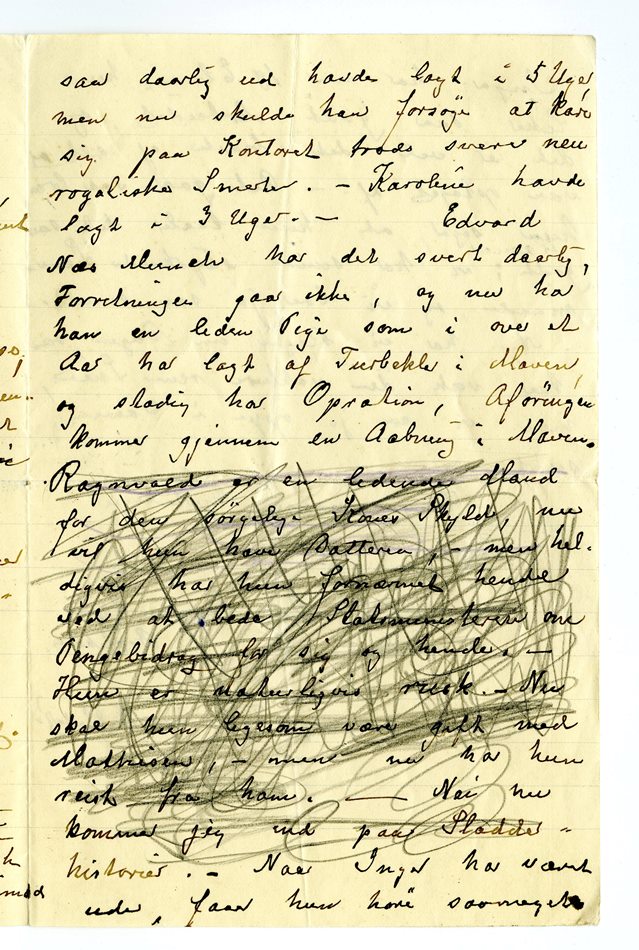 saa daarlig ud havde lagt i 5 Uger
men nu skulde han forsøge at kare
sig paa Kontoret trods svere neu
rogaliske Smerter. – Karoline havde
lagt i 3 Uger. – Edvard
Næs Munch har det svert daarlig,
Forretningen gaar ikke, og nu ha
han en liden Pige som i over et
Aar ha lagt af Turbekler i Maven,
og stadig har Opration, Aføringen
kommer gjennem en Aabning i Maven.
Ragnvald er en lidende Mand
for den sørgelige Kones Skyld, nu
vil hun have Datteren, – men hel-
digvis har hun fornærmet hende
ved at bede Statsministeren om
Pengebidrag for sig og hende. –
Hun er naturligvis rusk. – Nu
skal hun ligesom være gift med
Mathisen, – men nu ha hun
reist fra ham. — Nei nu
kommer jeg ind paa Sladder-
historier. – Naar Inger ha været
ude, faar hun høre saameget